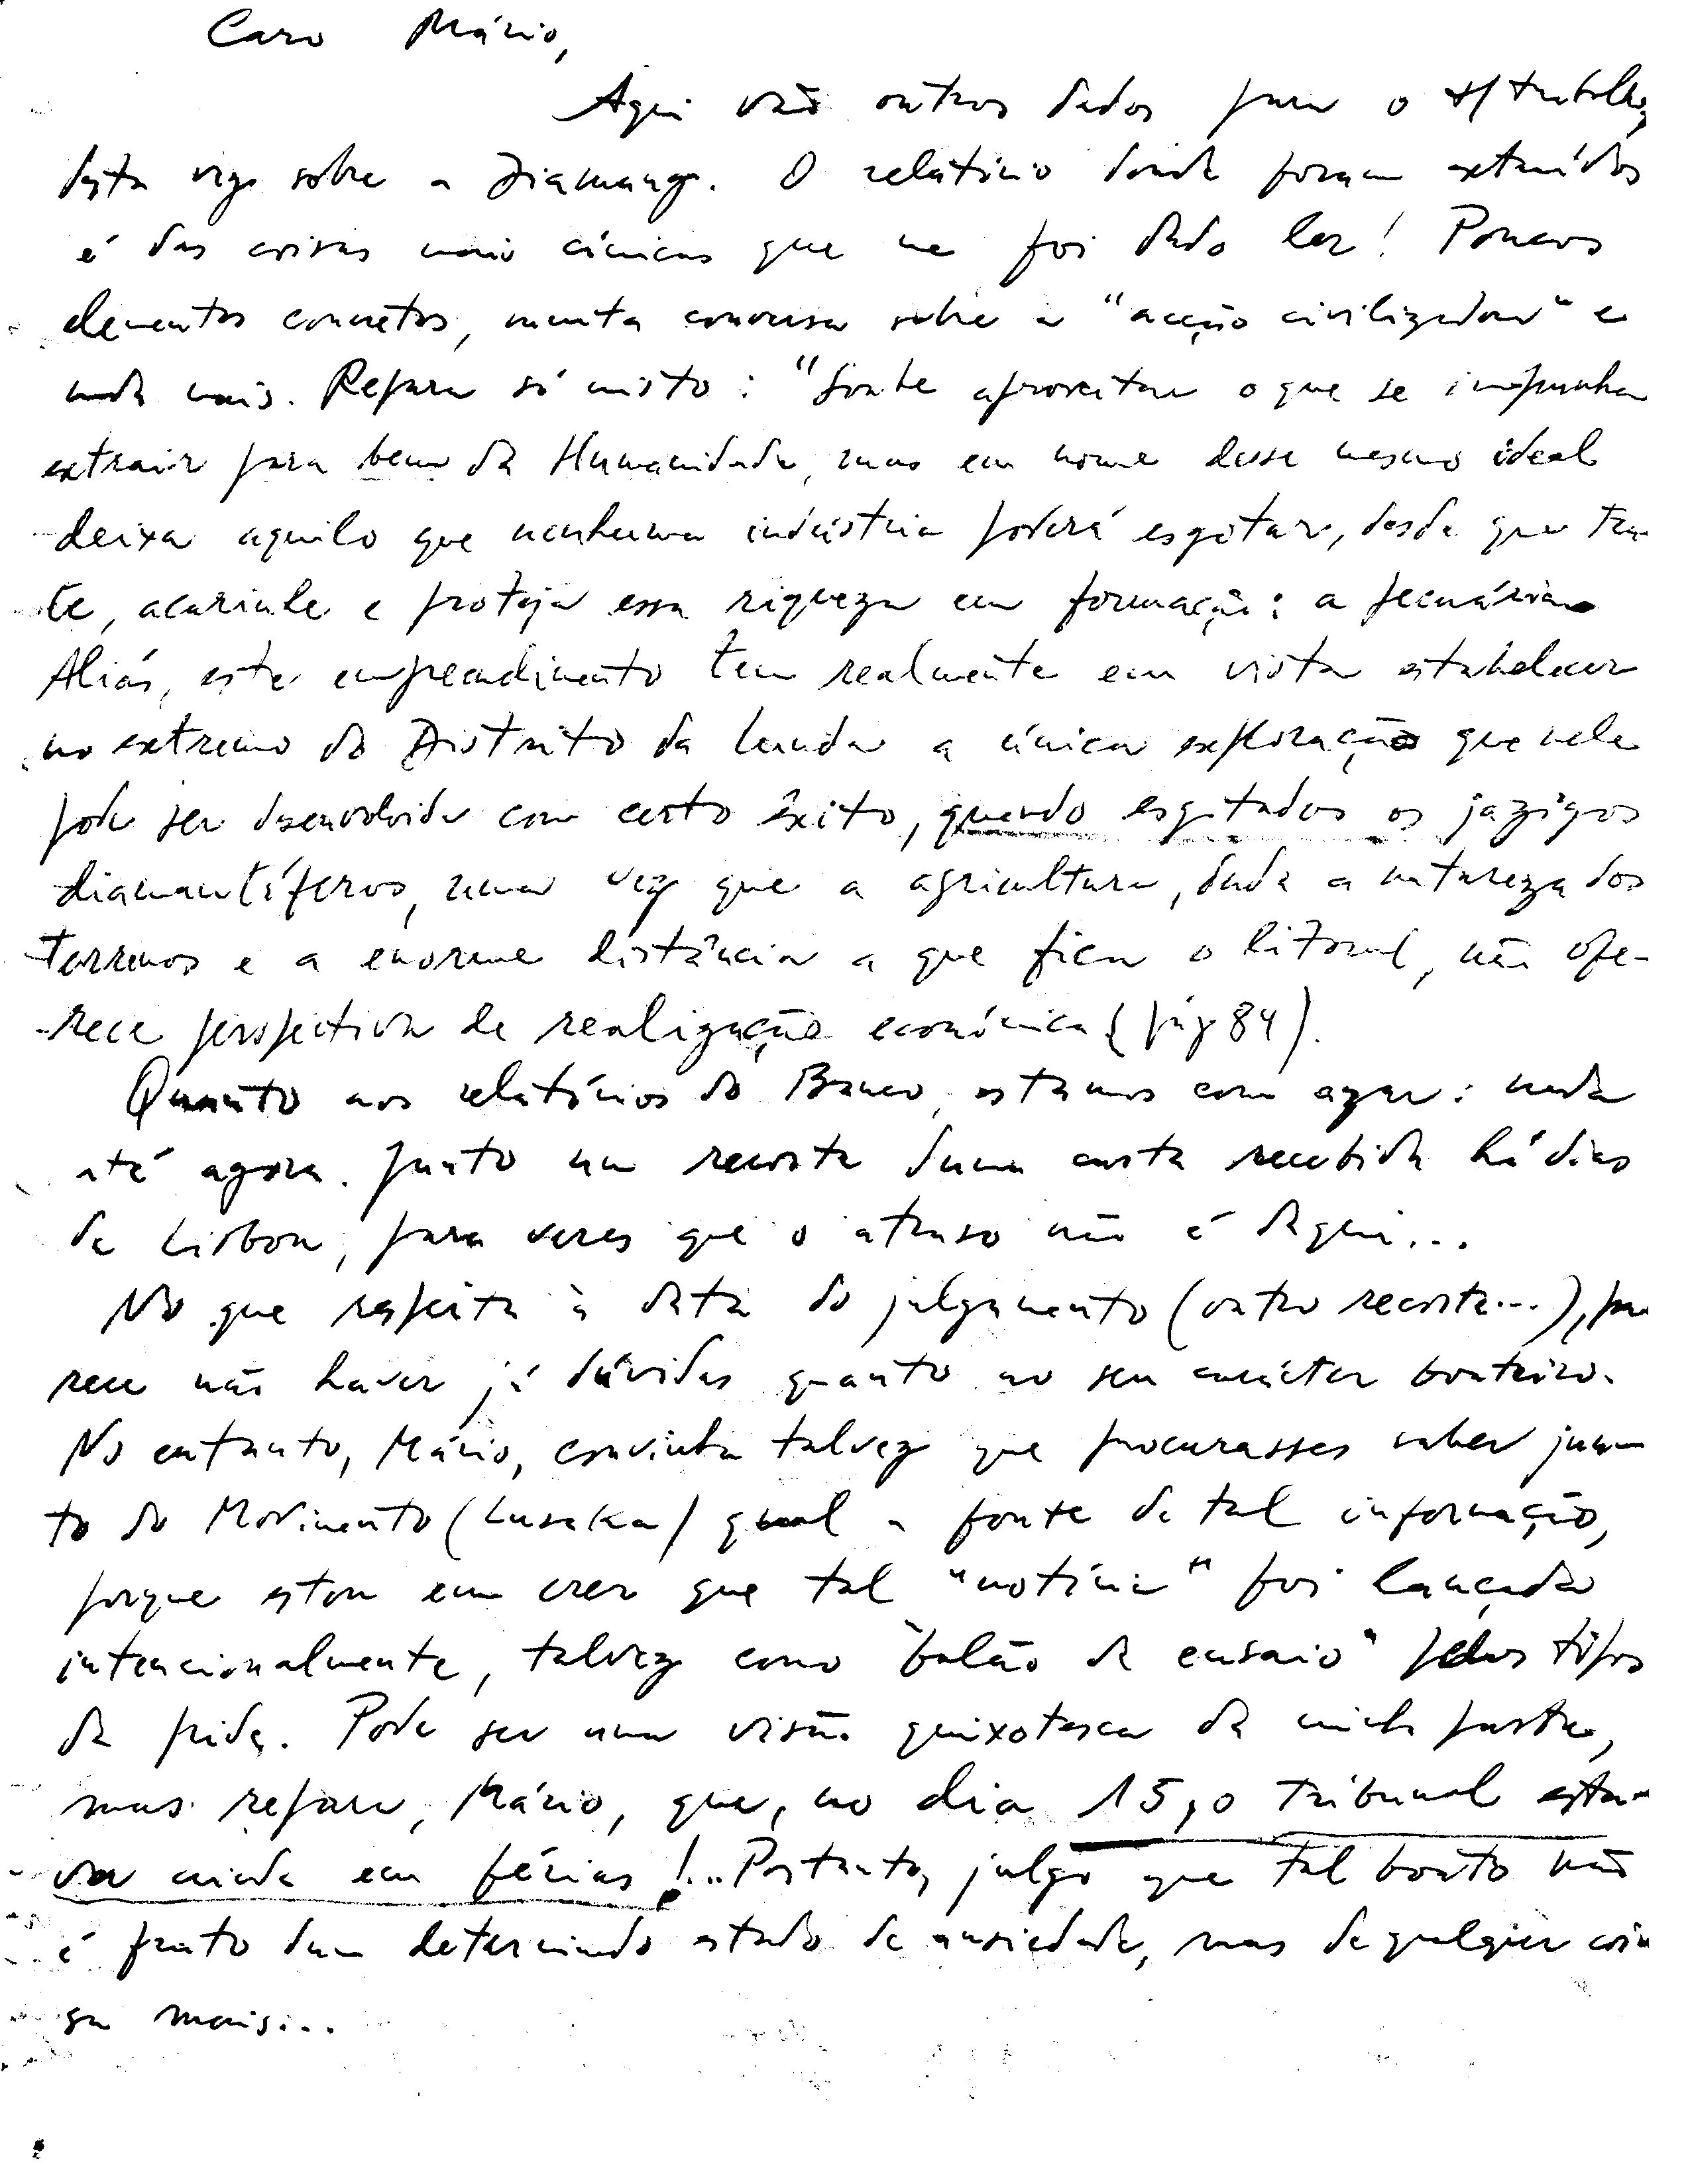 Caro Mário,
Aqui vão outros dados para o t/ trabalho,
desta vez sobre a Diamang. O relatório donde foram extraídos
é das coisas mais cínicas que me foi dado ler! Poucos
elementos concretos, muita conversa sobre a "acção civilizadora" e
nada mais. Repara só nisto: "Soube aproveitar o que se impunha
extrair para bem da Humanidade, mas em nome desse mesmo ideal
deixa aquilo que nenhuma indústria poderá esgotar, desde que tra-
te, acarinhe e proteja essa riqueza em formação: a pecuária.
Aliás, este empreendimento tem realmente em vista estabelecer
no extremo do Distrito da Lunda a única exploração que nele
pode ser desenvolvida com certo êxito, quando esgotados os jazigos
diamantíferos, uma vez que a agricultura, dada a natureza dos
terrenos e a enorme distância a que fica o litoral, não ofe-
rece perspectiva de realização económica (pág 84).
Quanto aos relatórios do Banco, estamos com azar: nada
até agora. Junto um recorte duma carta recebida há dias
de Lisboa, para veres que o atraso não é daqui...
No que respeita à data do julgamento (outro recorte...), pa
rece não haver já dúvidas quanto ao seu carácter boateiro.
No entanto, Mário, convinha talvez que procurasses saber jun-
to do Movimento (Lusaka) qual a fonte de tal informação,
porque estou em crer que tal "notícia" foi lançada
intencionalmente, talvez como "balão de ensaio" pelos tipos
da pide. Pode ser uma visão quixotesca da minha parte,
mas repara, Mário, que, no dia 15, o tribunal esta-
va ainda em férias!... Portanto, julgo que tal boato não
é fruto dum determinado estado de ansiedade, mas de qualquer coi
sa mais...